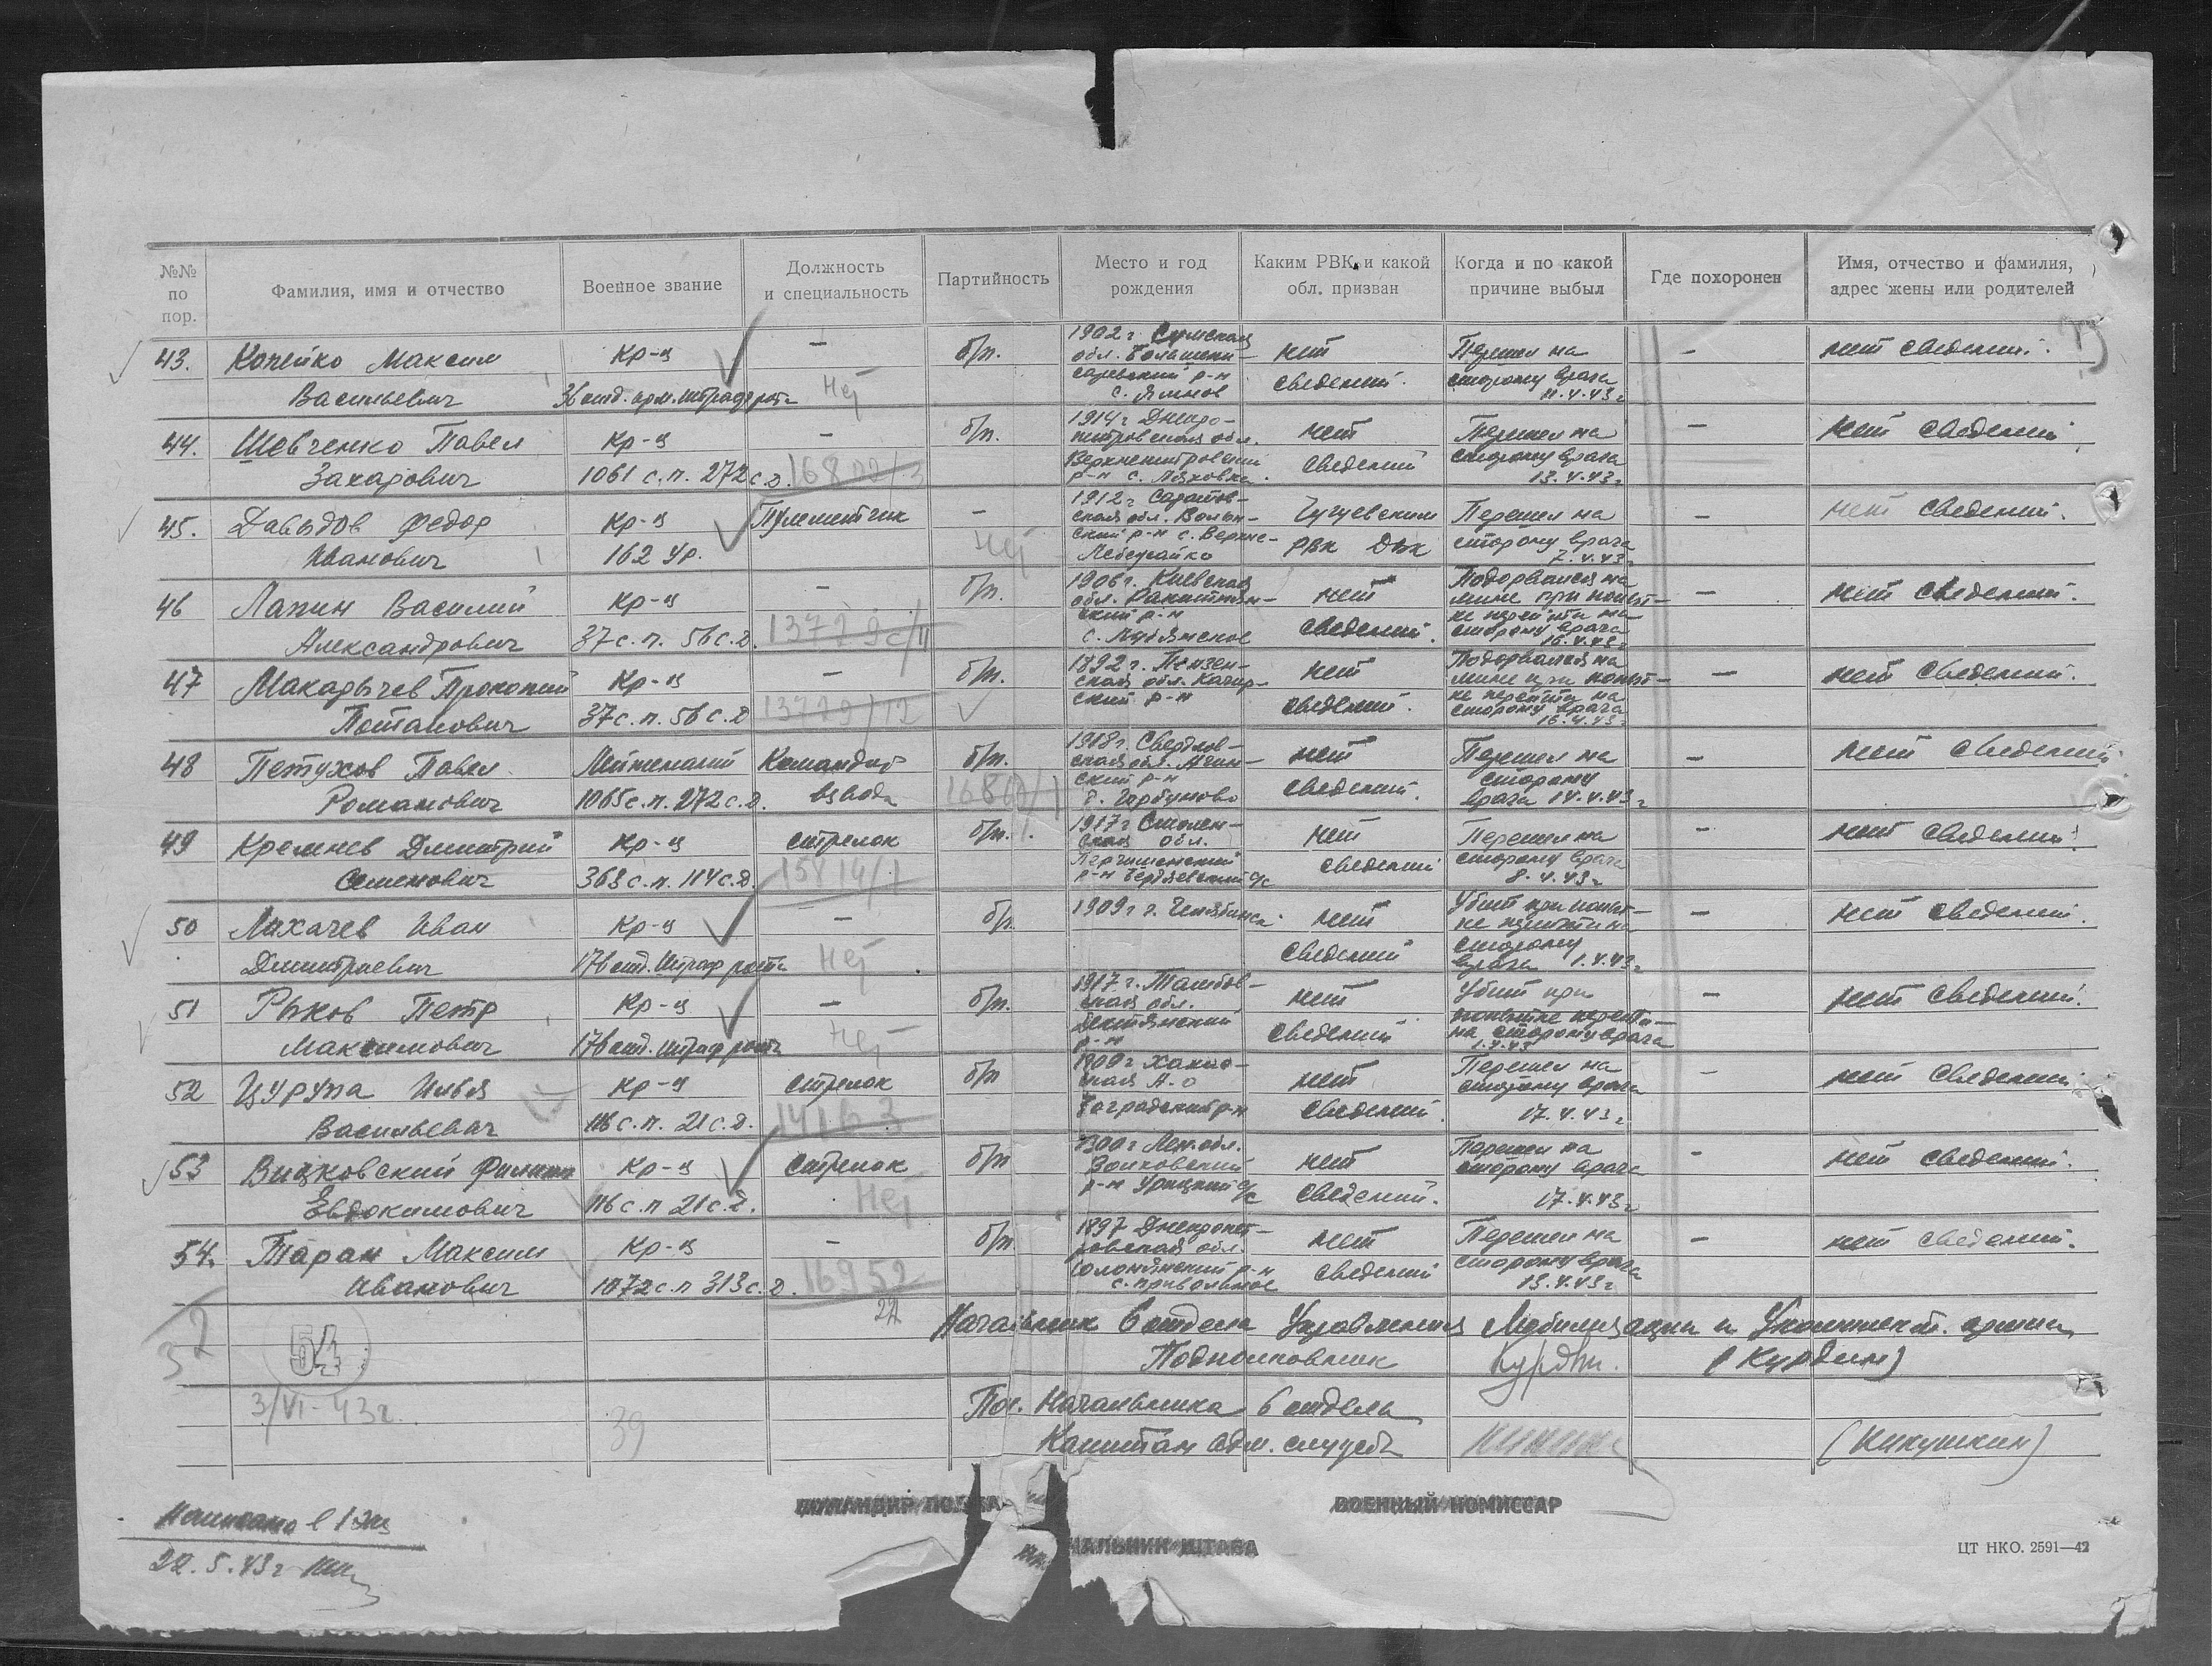 №№ по пор.
Фамилия, имя и отчество
Военное звание
Должность и специальность
Партийность
Место и год рождения
Каким РВК и какой обл. призван
Когда и по какой причине выбыл
Где похоронен
Имя, отчество и фамилия, адрес жены или родителей
43. Копейко Максим Васильевич
Кр-ц
36 отд. арм. штраф рота
—
Нет
б/п.
1902 г. Сумская обл.
р-н
с. Ямнов
нет сведений.
Перешел на сторону врага
11.4.43 г
—
нет сведений.
44. Шевченко Павел Захарович
Кр-ц
1061 с.п. 272 с.д.
—
б/п.
1914 г Днепропетровская обл.
р-н с.
нет сведений
Перешел на сторону врага
13.4.43 г
—
нет сведений
45. Давыдов Федор Иванович
Кр-ц
162 Ур.
Пулеметчик
—
Нет
1912 г Саратовская обл.
ский р-н с.
Чугуевским РВК ДВК
Перешел на сторону врага
7.4.43 г
—
нет сведений.
46 Лапин Василий Александрович
Кр-ц
37 с.п. 56 с.д.
—
13729с/11
б/п.
1906 г. Киевская обл. Ракитянский р-н
с.
нет сведений.
Подорвался на мине при попытке перейти на сторону врага
16.4.43 г
—
нет сведений.
47 Макарычев Прокопий Потапович
Кр-ц
37 с.п. 56 с.д
—
13729/12
б/п.
1892 г. Пензенская обл.
ский р-н
нет сведений.
Подорвался на мине при попытке перейти на сторону врага
16.4.43 г
—
нет сведений.
48 Петухов Павел Романович
Лейтенант
1065 с.п. 272 с.д.
Командир взвода
б/п.
1918 г. Свердловская обл. Ачинский р-н
д. Горбуново
нет сведений.
Перешел на сторону врага 14.4.43 г
—
нет сведений
49 Кремнев Дмитрий Семенович
Кр-ц
363 с.п. 114 с.д.
стрелок
15814/1
б/п.
1917 г Смоленская обл.
нет сведений
Перешел на сторону врага
8.4.43 г
—
нет сведений
50 Лихачев Иван Дмитриевич
Кр-ц
176 отд. Штраф рота
—
Нет
б/п.
1909 г г. Челябинск
нет сведений
Убит при попытке перейти на сторону врага 1.4.43 г
—
нет сведений.
51 Рыков Петр Максимович
Кр-ц
176 отд. штраф рота
—
Нет
б/п.
1917 г. Тамбовская обл.
р-н
нет сведений
Убит при попытке перейти на сторону врага
1.4.43
—
нет сведений.
52 Цурупа Илья Васильевич
Кр-ц
116 с.п. 21 с.д.
стрелок
14163
б/п
1900 г Хакасская А.о
Боградский р-н
нет сведений.
Перешел на сторону врага
17.4.43 г
—
нет сведений
53 Вицковский Филипп Евдокимович
Кр-ц
116 с.п 21 с.д.
Стрелок
Нет
б/п
1900 г Лен. обл.
р-н Урицкий с/с
нет сведений.
Перешел на сторону врага
17.4.43 г
—
нет сведений.
54. Таран Максим Иванович
Кр-ц
1072 с.п 313 с.д.
—
16952
б/п
1897 Днепропетровская обл.
Солонянский р-н
с. Привольное
нет сведений
Перешел на сторону врага
13.4.43 г
—
нет сведений.
Начальник 6 отдела Управления Мобилизации и Укомплект. армии
Подполковник
(Курдин)
54
3/VI-43 г.
39
Пом. Начальника 6 отдела
Капитан адм. службы
(Кикушкин)
КОМАНДИР ПОЛКА
ВОЕННЫЙ КОМИССАР
НАЧАЛЬНИК ШТАБА
Написано в 1 экз
22.5.43 г
ЦТ НКО. 2591—42